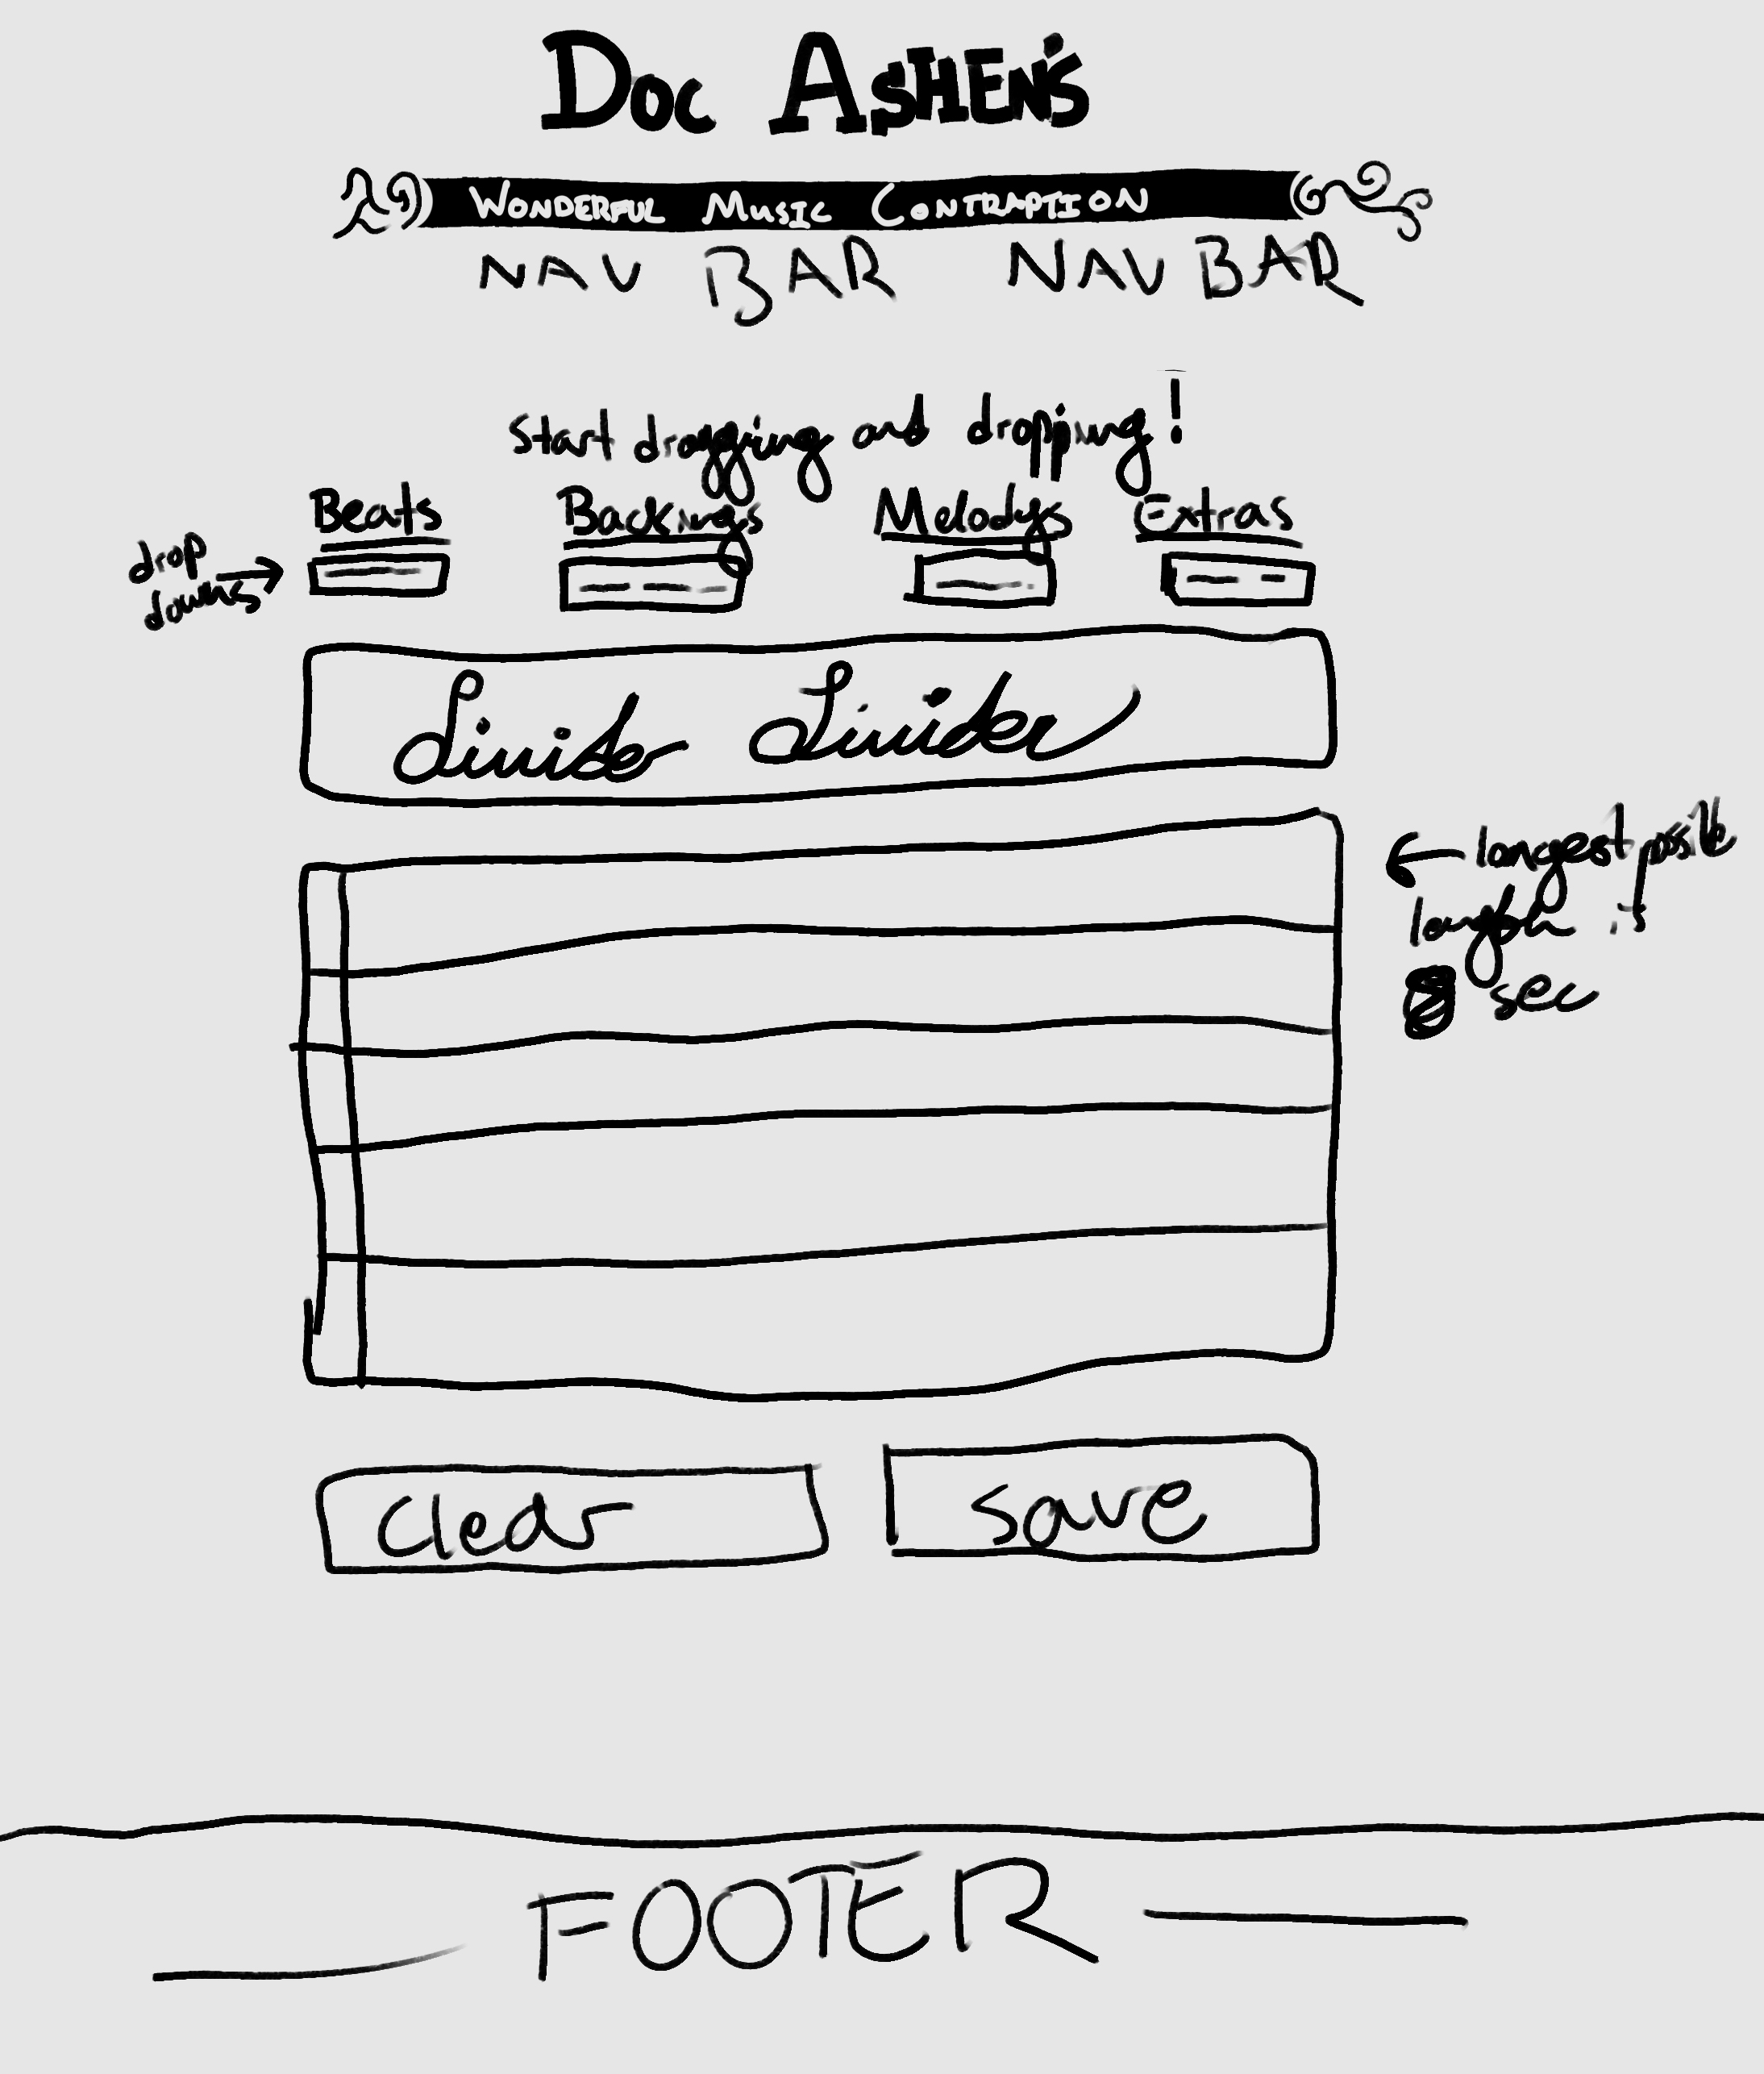 DOC ASHEN'S
WONDERFUL MUSIC CONTRAPTION
NAV BAR NAV BAR
Start dragging and dropping!
Beats Backings Melodys Extras
drop
downs
Divider Divider
longest possible
length is
8 sec
Clear save
FOOTER